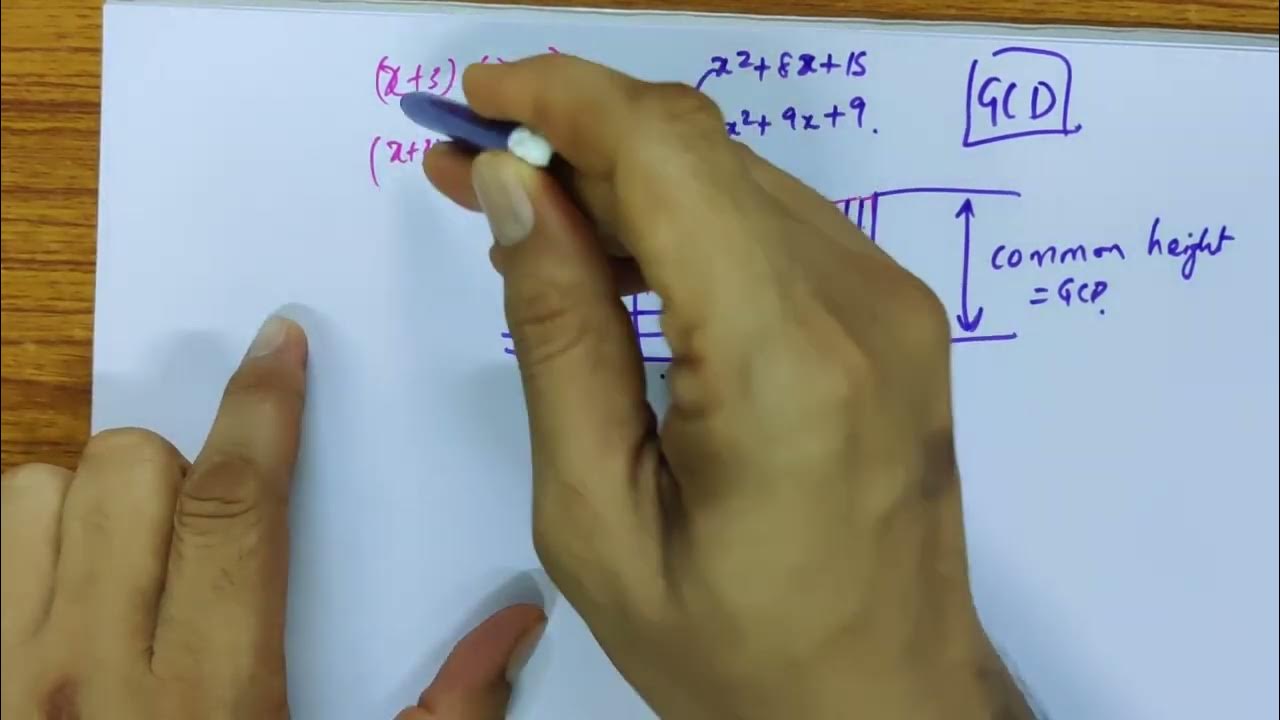 (x+3)
x²+8x+15
x²+9x+9.
GCD
(x+3
common height
= GCD.